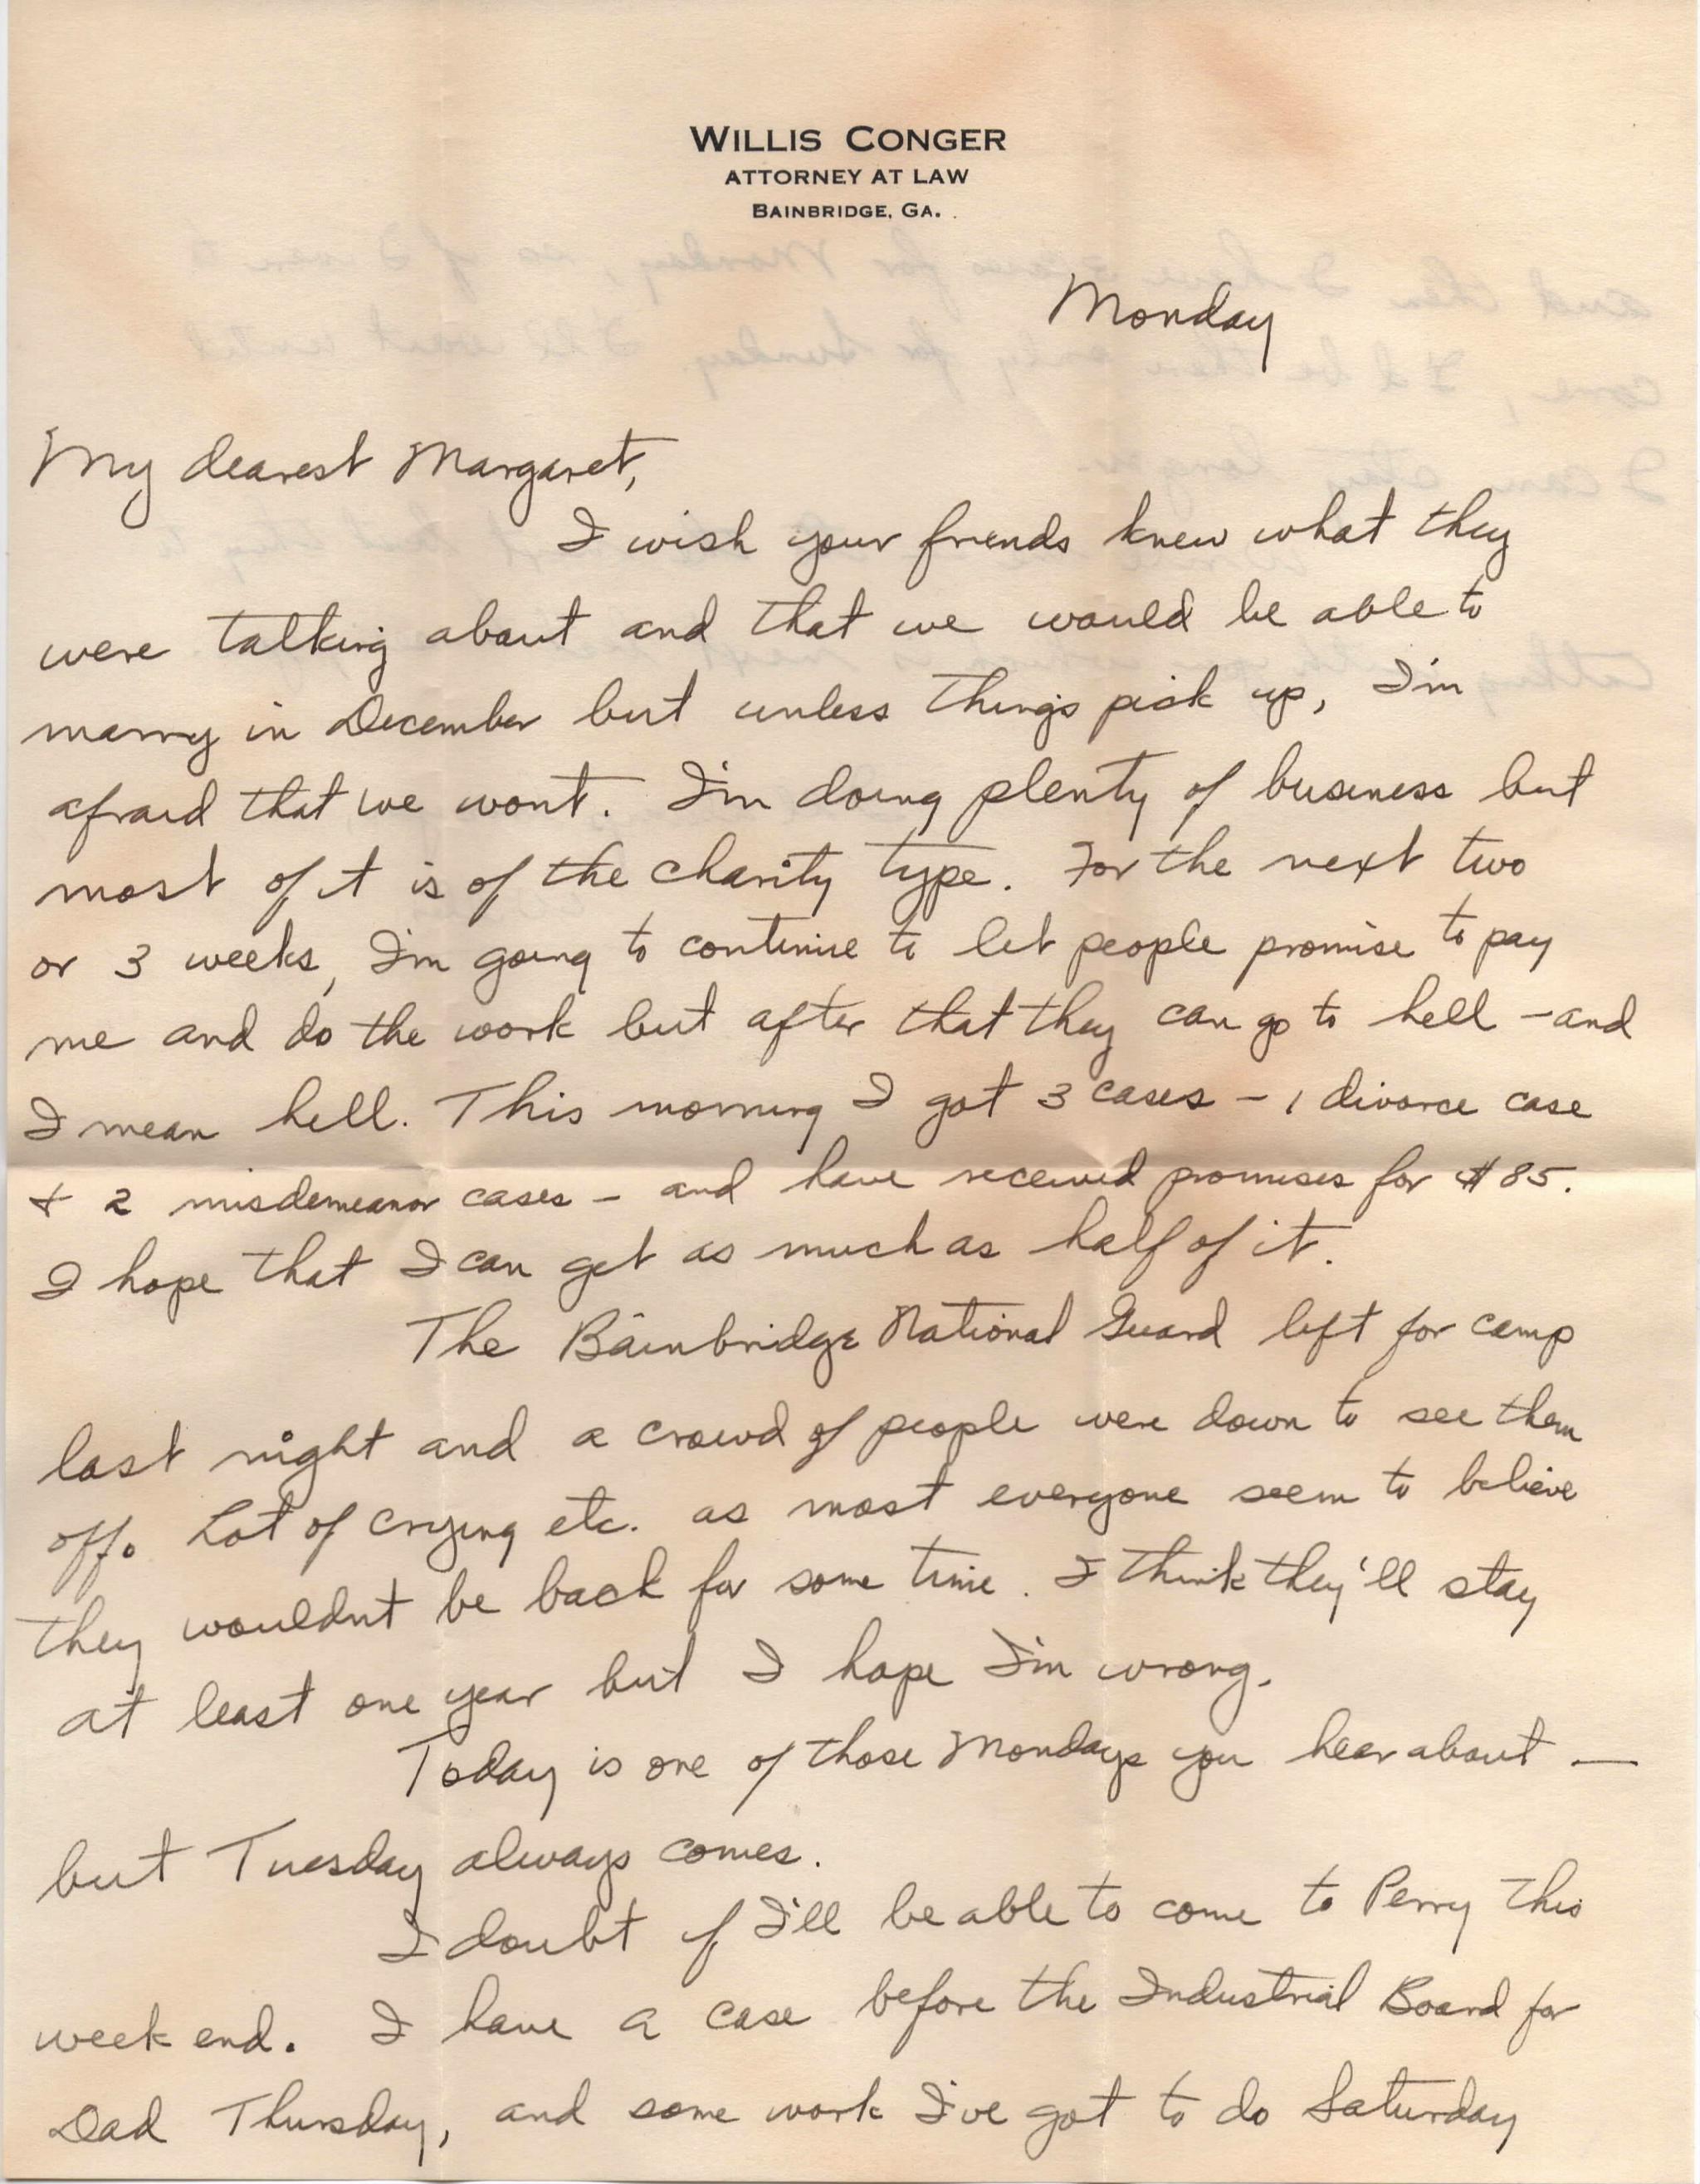 WILLIS CONGER
ATTORNEY AT LAW
BAINBRIDGE, GA.
Monday
My dearest Margaret,
I wish your friends knew what they
were talking about and that we would be able to
marry in December but unless things pick up, I'm
afraid that we wont. I'm doing plenty of business but
most of it is of the charity type. For the next two
or 3 weeks, I'm going to continue to let people promise to pay
me and do the work but after that they can go to hell - and
I mean hell. This morning I got 3 cases - 1 divorce case
& 2 misdemeanor cases - and have received promises for $85.
I hope that I can get as much as half of it.
The Bainbridge National Guard left for camp
last night and a crowd of people were down to see them
off. Lot of crying etc. as most everyone seem to believe
they wouldnt be back for some time. I think they'll stay
at least one year but I hope I'm wrong.
Today is one of those Mondays you hear about —
but Tuesday always comes.
I doubt if I'll be able to come to Perry this
week end. I have a case before the Industrial Board for
Dad Thursday, and some work I've got to do Saturday